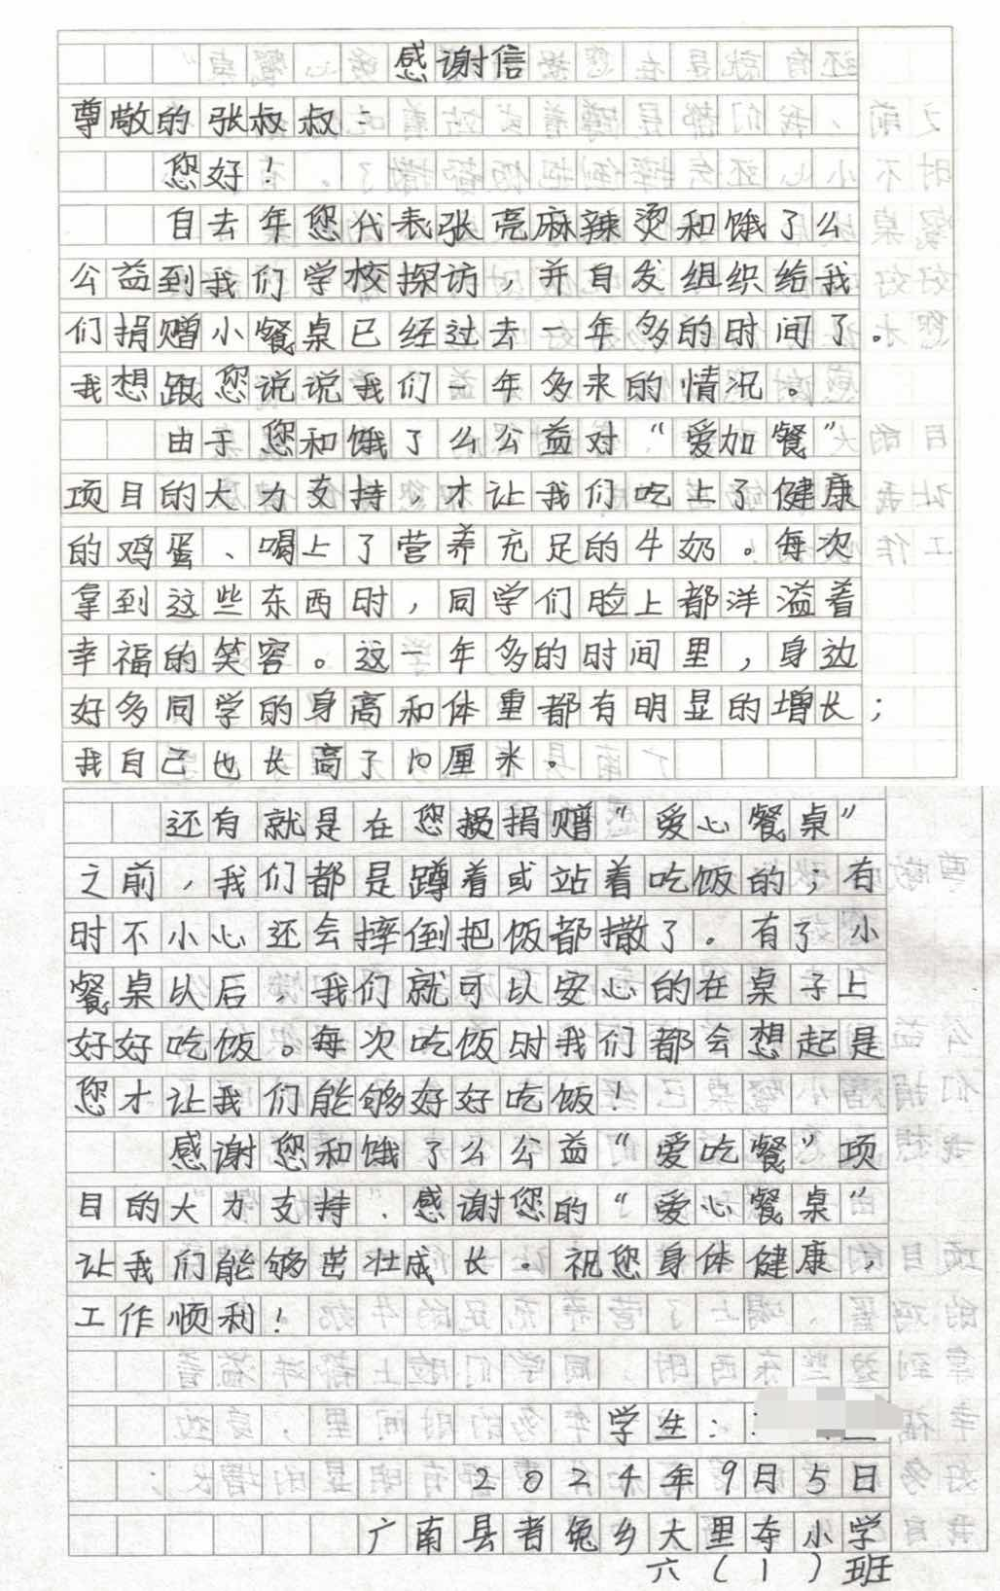 感谢信
尊敬的张叔叔：
您好！
自去年您代表张亮麻辣烫和饿了么
公益到我们学校探访，并自发组织给我
们捐赠小餐桌已经过去一年多的时间了。
我想跟您说说我们一年多来的情况。
由于您和饿了么公益对“爱加餐”
项目的大力支持，才让我们吃上了健康
的鸡蛋、喝上了营养充足的牛奶。每次
拿到这些东西时，同学们脸上都洋溢着
幸福的笑容。这一年多的时间里，身边
好多同学的身高和体重都有明显的增长；
我自己也长高了10厘米。
还有就是在您捐赠“爱心餐桌”
之前，我们都是蹲着或站着吃饭的；有
时不小心还会摔倒把饭都撒了。有了小
餐桌以后，我们就可以安心的在桌子上
好好吃饭。每次吃饭时我们都会想起是
您才让我们能够好好吃饭！
感谢您和饿了么公益“爱吃餐”项
目的大力支持、感谢您的“爱心餐桌”
让我们能够茁壮成长。祝您身体健康，
工作顺利！
学生：
2024年9月5日
广南县者兔乡大里夺小学
六（1）班